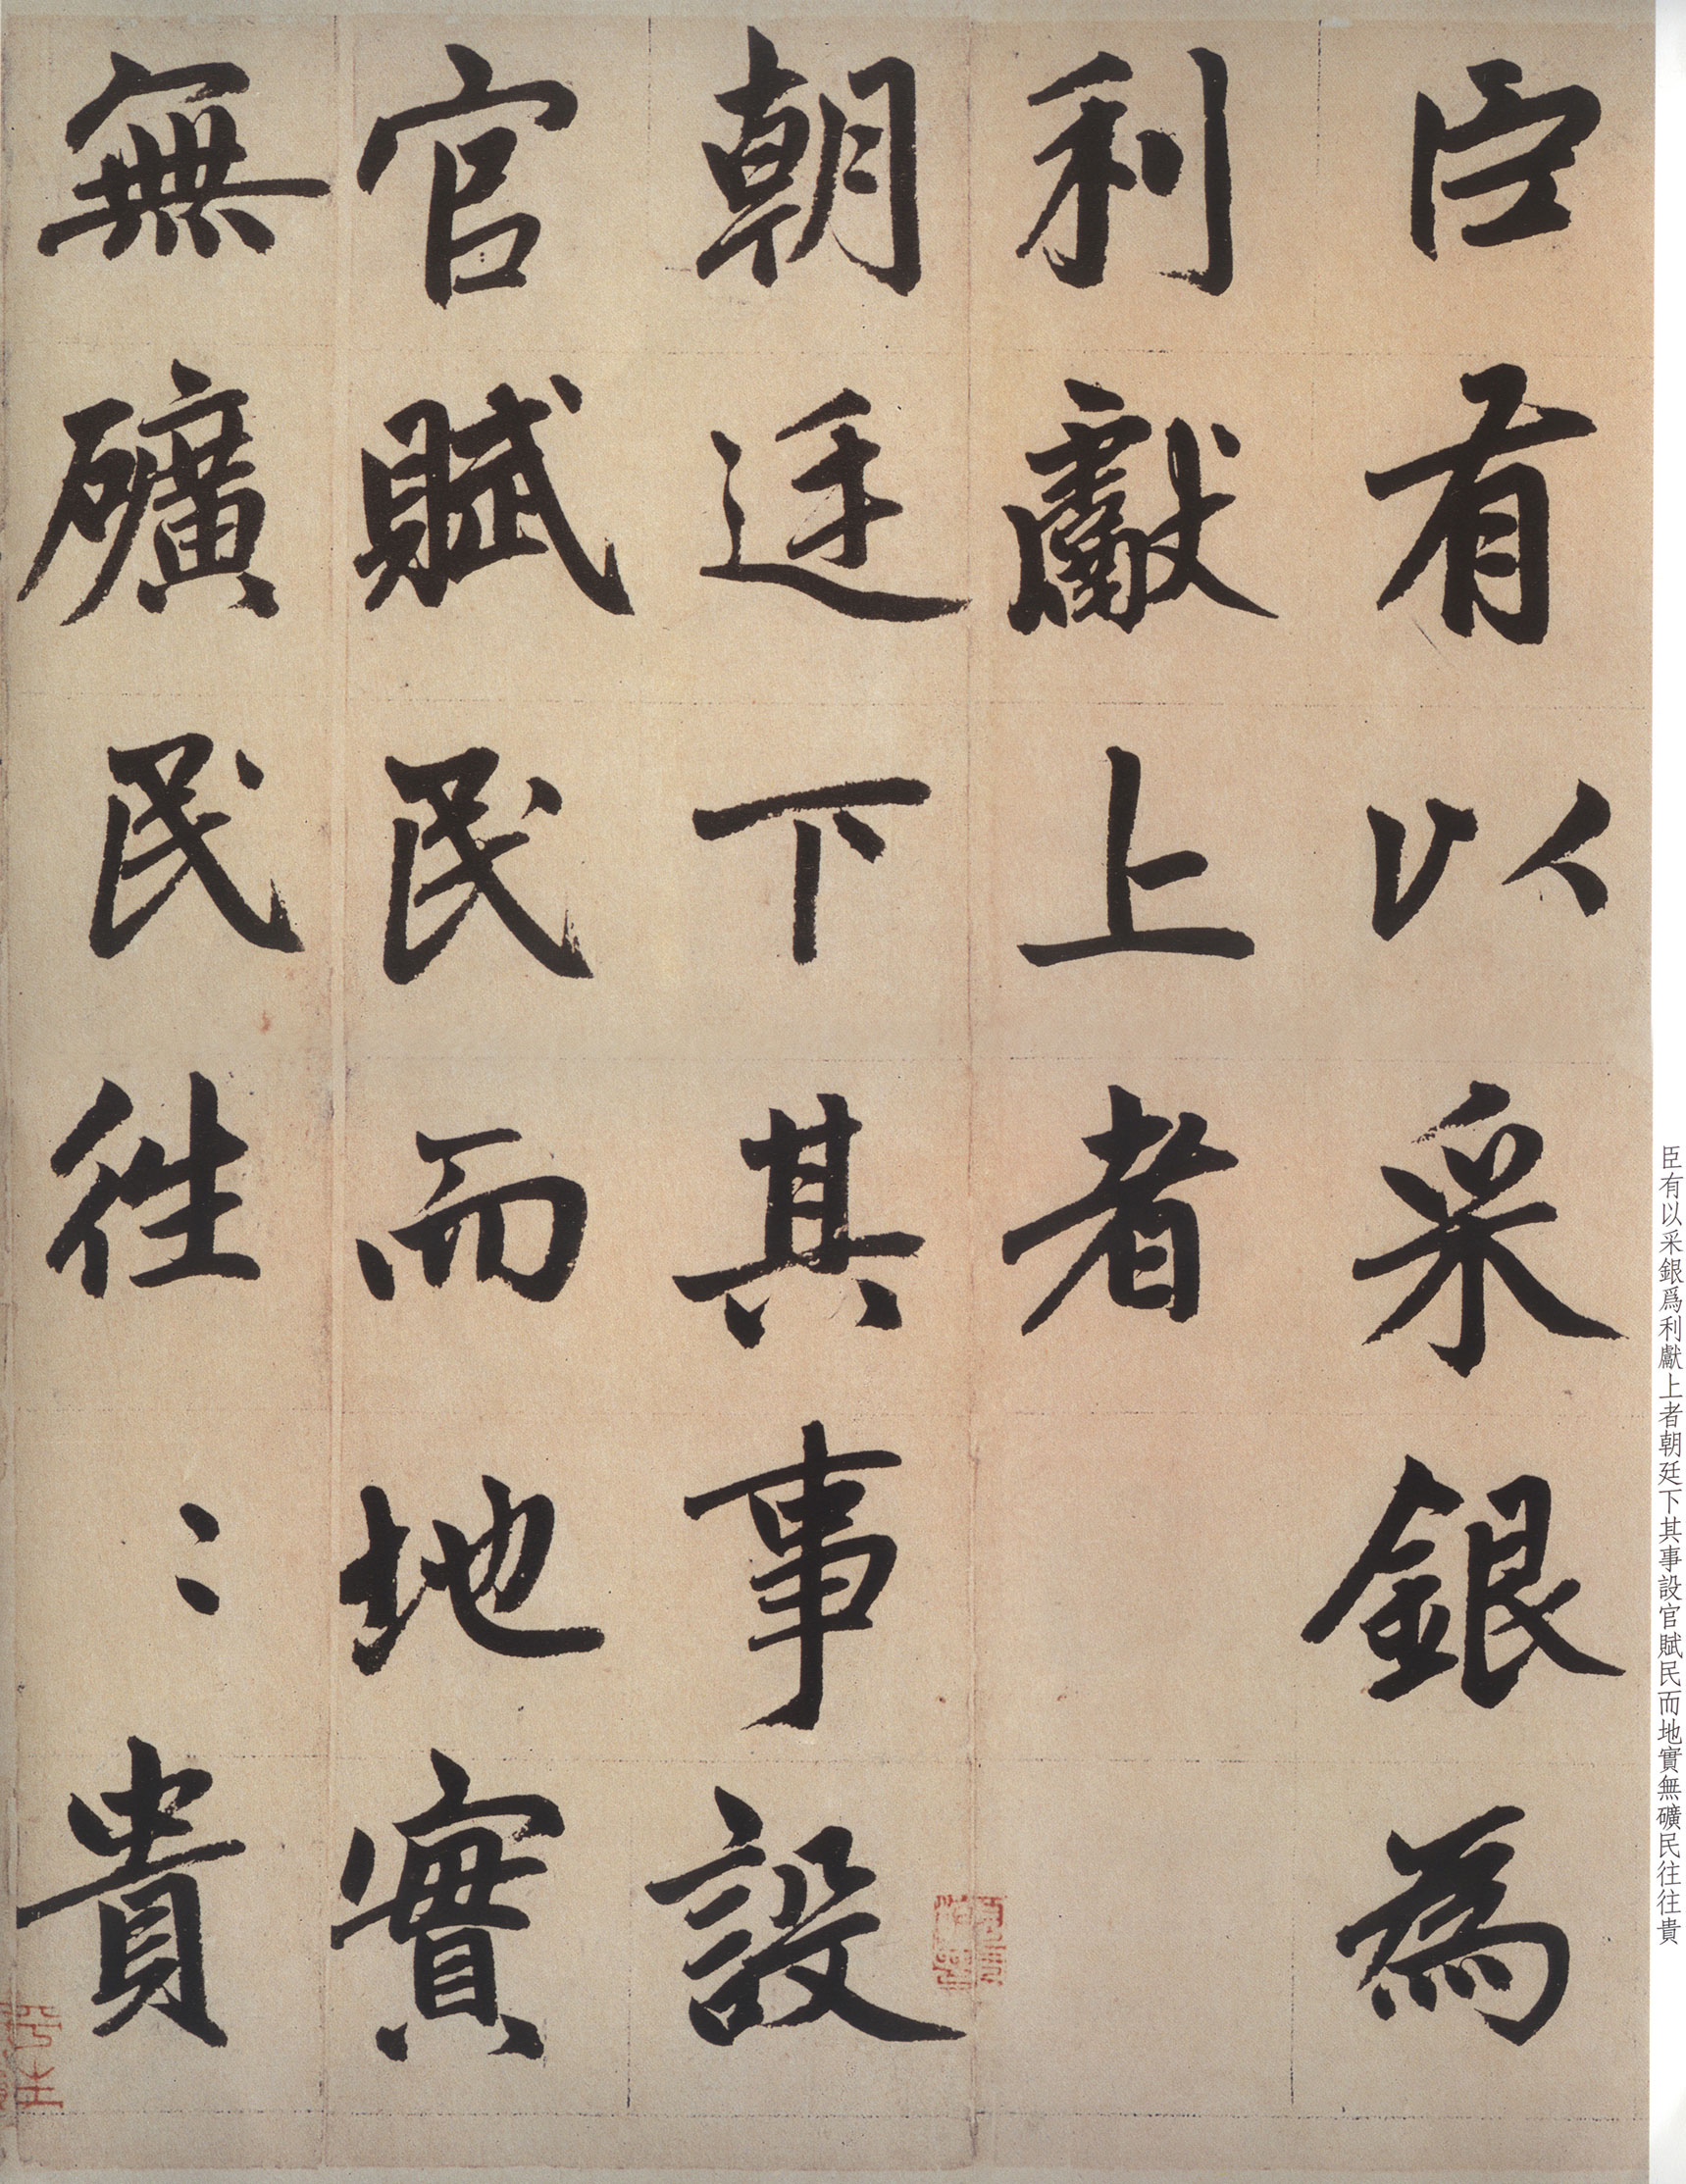 臣有以采銀為
利獻上者
朝廷下其事設
官賦民而地實
無礦民往〻貴
臣有以采銀爲利獻上者朝廷下其事設官賦民而地實無礦民往往貴